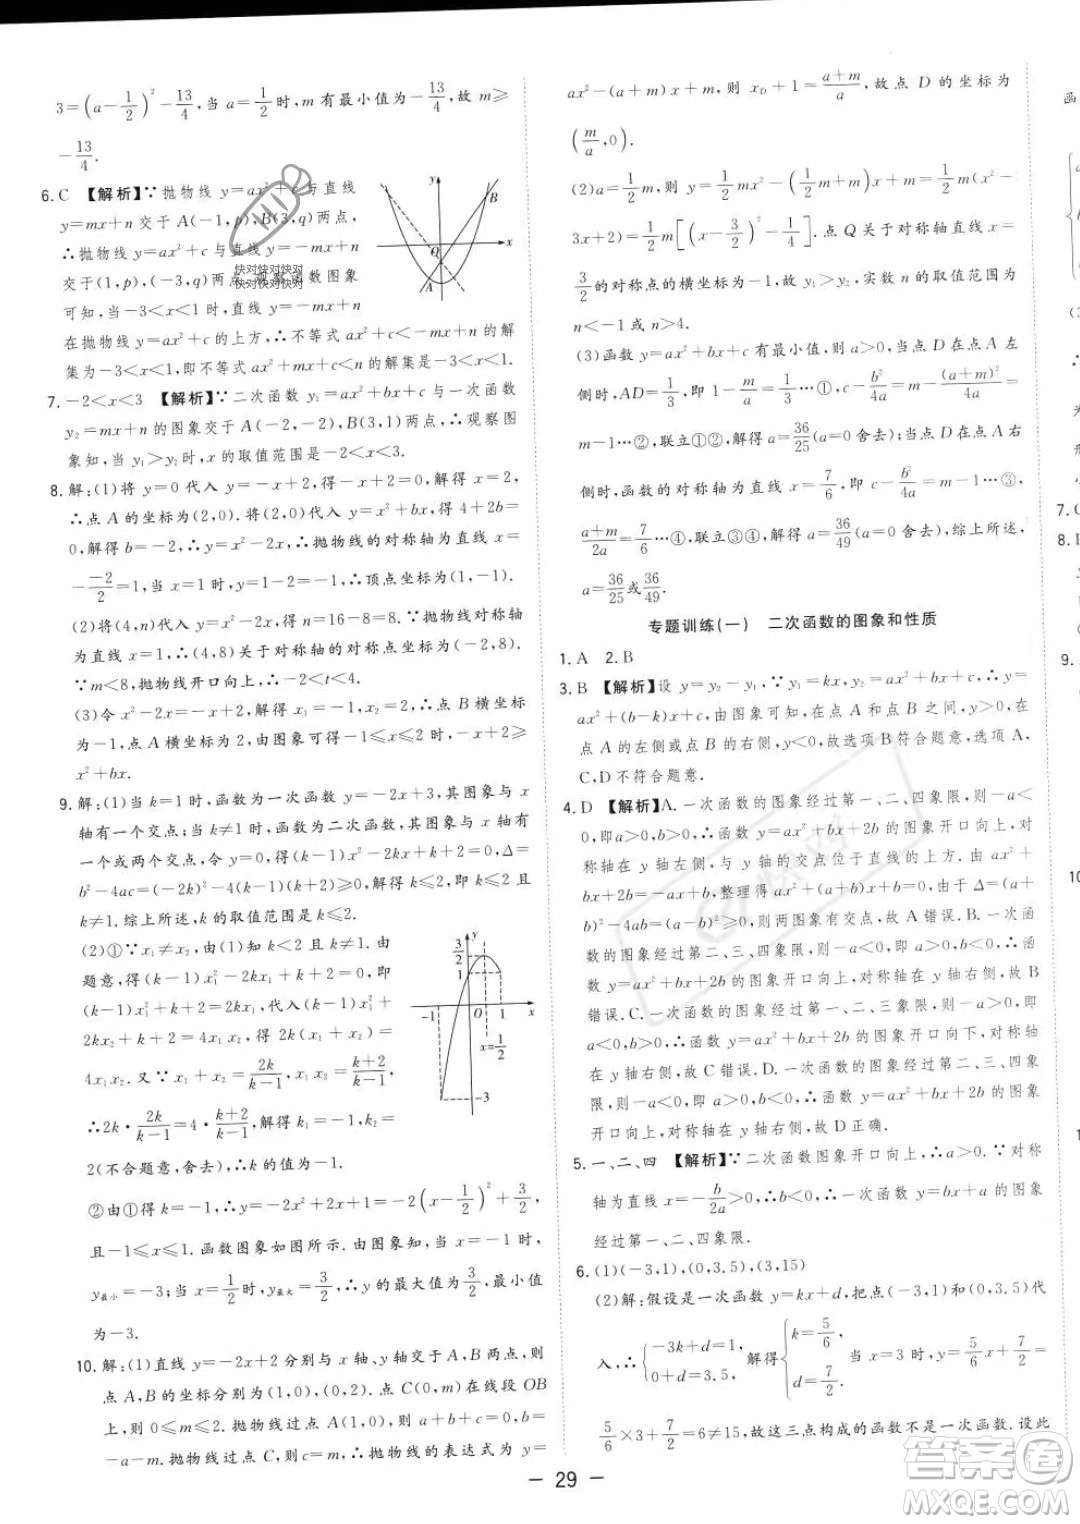 3=(a-1/2)²-13/4,当 a=1/2时,m 有最小值为-13/4,故 m≥
-13/4.
6.C 【解析】∵抛物线 y=ax²+c与直线
y=mx+n 交于 A(-1,p),B(3,q)两点,
∴抛物线 y=ax²+c与直线 y=-mx+n
交于(1,p),(-3,q)两点,观察函数图象
可知,当-3<x<1时,直线 y=-mx+n
在抛物线 y=ax²+c 的上方,∴不等式 ax²+c<-mx+n 的解
集为-3<x<1,即不等式 ax²+mx+c<n 的解集是-3<x<1.
7.-2<x<3 【解析】∵二次函数 y₂=ax²+bx+c与一次函数
y₂=mx+n的图象交于 A(-2,-2),B(3,1)两点,∴观察图
象知,当 y₁>y₂时,x 的取值范围是-2<x<3.
8.解:(1)将 y=0 代入 y=-x+2,得-x+2=0,解得 x=2,
∴点 A 的坐标为(2,0).将(2,0)代入 y=x²+bx,得 4+2b=
0,解得 b=-2,∴y=x²-2x,∴抛物线的对称轴为直线 x=
-(-2)/2=1,当 x=1 时,y=1-2=-1,∴顶点坐标为(1,-1).
(2)将(4,n)代入 y=x²-2x,得 n=16-8=8.∵抛物线对称轴
为直线 x=1,∴(4,8)关于对称轴的对称点坐标为(-2,8).
∵m<8,抛物线开口向上,∴-2<t<4.
(3)令 x²-2x=-x+2,解得 x₁=-1,x₂=2,∴点 B 横坐标
为-1,点 A 横坐标为 2,由图象可得,当-1≤x≤2 时,-x+2≥
x²+bx.
9.解:(1)当 k=1 时,函数为一次函数 y=-2x+3,其图象与 x
轴有一个交点;当 k≠1 时,函数为二次函数,其图象与 x 轴有
一个或两个交点,令 y=0,得(k-1)x²-2kx+k+2=0,Δ=
b²-4ac=(-2k)²-4(k-1)(k+2)≥0,解得 k≤2,即 k≤2 且
k≠1.综上所述,k 的取值范围是 k≤2.
(2)①∵x₁≠x₂,由(1)知 k<2 且 k≠1,由
题意,得(k-1)x₁²-2kx₁+k+2=0,即
(k-1)x₁²+k+2=2kx₁,代入(k-1)x₁²+
2kx₂+k+2=4x₁x₂,得 2k(x₁+x₂)=
4x₁x₂.又∵x₁+x₂=2k/(k-1),x₁x₂=(k+2)/(k-1),
∴2k·2k/(k-1)=4·(k+2)/(k-1),解得 k₁=-1,k₂=
2(不合题意,舍去),∴k 的值为-1.
②由①得 k=-1,∴y=-2x²+2x+1=-2(x-1/2)²+3/2,
且-1≤x≤1.函数图象如图所示.由图象知,当 x=-1 时,
y最小=-3;当 x=1/2时,y最大=3/2,∴y 的最大值为3/2,最小值
为-3.
10.解:(1)直线 y=-2x+2 分别与 x 轴、y 轴交于 A,B 两点,则
点 A,B 的坐标分别为(1,0),(0,2).点 C(0,m)在线段 OB
上,则 0≤m≤2.抛物线过点 A(1,0),则 a+b+c=0①.抛物
线过点 C,则 c=m②.联立①②,得 c=m,b=
-a-m.抛物线的表达式为 y=
ax²-(a+m)x+m,则 x_D+1=(a+m)/a,故点 D 的坐标为
(m/a,0).
(2)a=1/2m,则抛物线 y=1/2mx²-(1/2m+m)x+m=1/2m(x²-
3x+2)=1/2m[(x-3/2)²-1/4].点 Q 关于对称轴直线 x=
3/2的对称点的横坐标为-1,∵抛物线开口向上,实数 n 的取值范围为
n<-1 或 n>4.
(3)函数 y=ax²+bx+c 有最小值,则 a>0,当点 D 在点 A 左
侧时,AD=1/3,即 1-m/a=1/3…①,c-b²/4a=m-(a+m)²/4a=
m-1…②,联立①②,解得 a=36/25(a=0 舍去);当点 D 在点 A 右
侧时,函数的对称轴为直线 x=7/6,即 c-b²/4a=m-1…③,
(a+m)/2a=7/6…④,联立③④,解得 a=36/49(a=0 舍去),综上所述,
a=36/25或36/49.
专题训练(一) 二次函数的图象和性质
1.A 2.B
3.B 【解析】设 y=y₂-y₁,∵y₁=kx,y₂=ax²+bx+c,∴y=
ax²+(b-k)x+c,由图象可知,在点 A 和点 B 之间,y>0,在
点 A 的左侧或点 B 的右侧,y<0,故选项 B 符合题意,选项 A、
C、D 不符合题意.
4.D 【解析】A.一次函数的图象经过第一、二、四象限,则-a<
0,即a>0,b>0,∴函数 y=ax²+bx+2b 的图象开口向上,对
称轴在 y 轴左侧,与 y 轴的交点位于直线的上方.由 ax²+
bx+2b=-ax+b,整理得 ax²+(a+b)x+b=0,由于Δ=(a+
b)²-4ab=(a-b)²≥0,则两图象有交点,故 A 错误.B.一次函
数的图象经过第二、三、四象限,则函数 y=
ax²+bx+2b 的图象开口向上,对称轴在 y 轴右侧,故 B
错误.C.一次函数的图象经过第一、二、三象限,则-a>0,即
a<0,b>0,∴函数 y=ax²+bx+2b 的图象开口向下,对称轴
在 y 轴右侧,故 C 错误.D.一次函数的图象经过第二、三、四象
限,则-a<0,即 a>0,b<0,∴函数 y=ax²+bx+2b 的图象
开口向上,对称轴在 y 轴右侧,故 D 正确.
5.一、二、四 【解析】∵二次函数图象开口向上,∴a>0.∵对称
轴为直线 x=-b/2a>0,∴b<0,∴一次函数 y=bx+a 的图象
经过第一、二、四象限.
6.(1)(-3,1),(0,3.5),(3,15)
(2)解:假设是一次函数 y=kx+d,把点(-3,1)和(0,3.5)代
入,∴{-3k+d=1, d=3.5, 解得{k=5/6, d=7/2. 当 x=3 时,y=5/6x+7/2=
5/6×3+7/2=6≠15,故这三点构成的函数不是一次函数.设此
— 29 —
快对快对快对
快对快对快对
答案卷
MXQE.COM